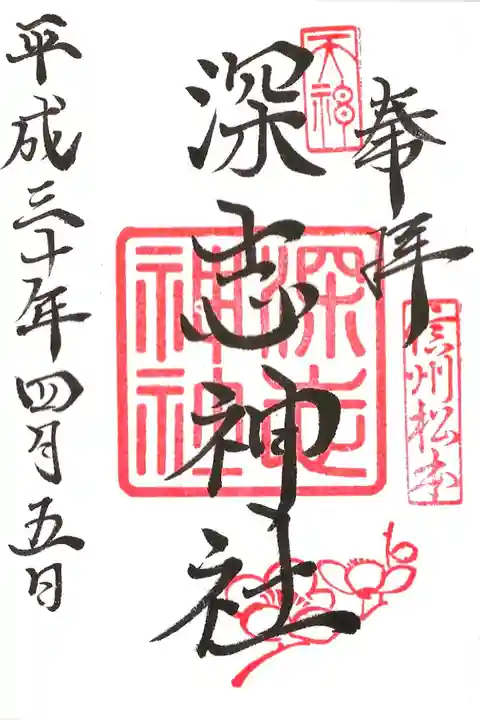 奉拝
天神
信州松本
深志神社
深志神社
平成三十年四月五日